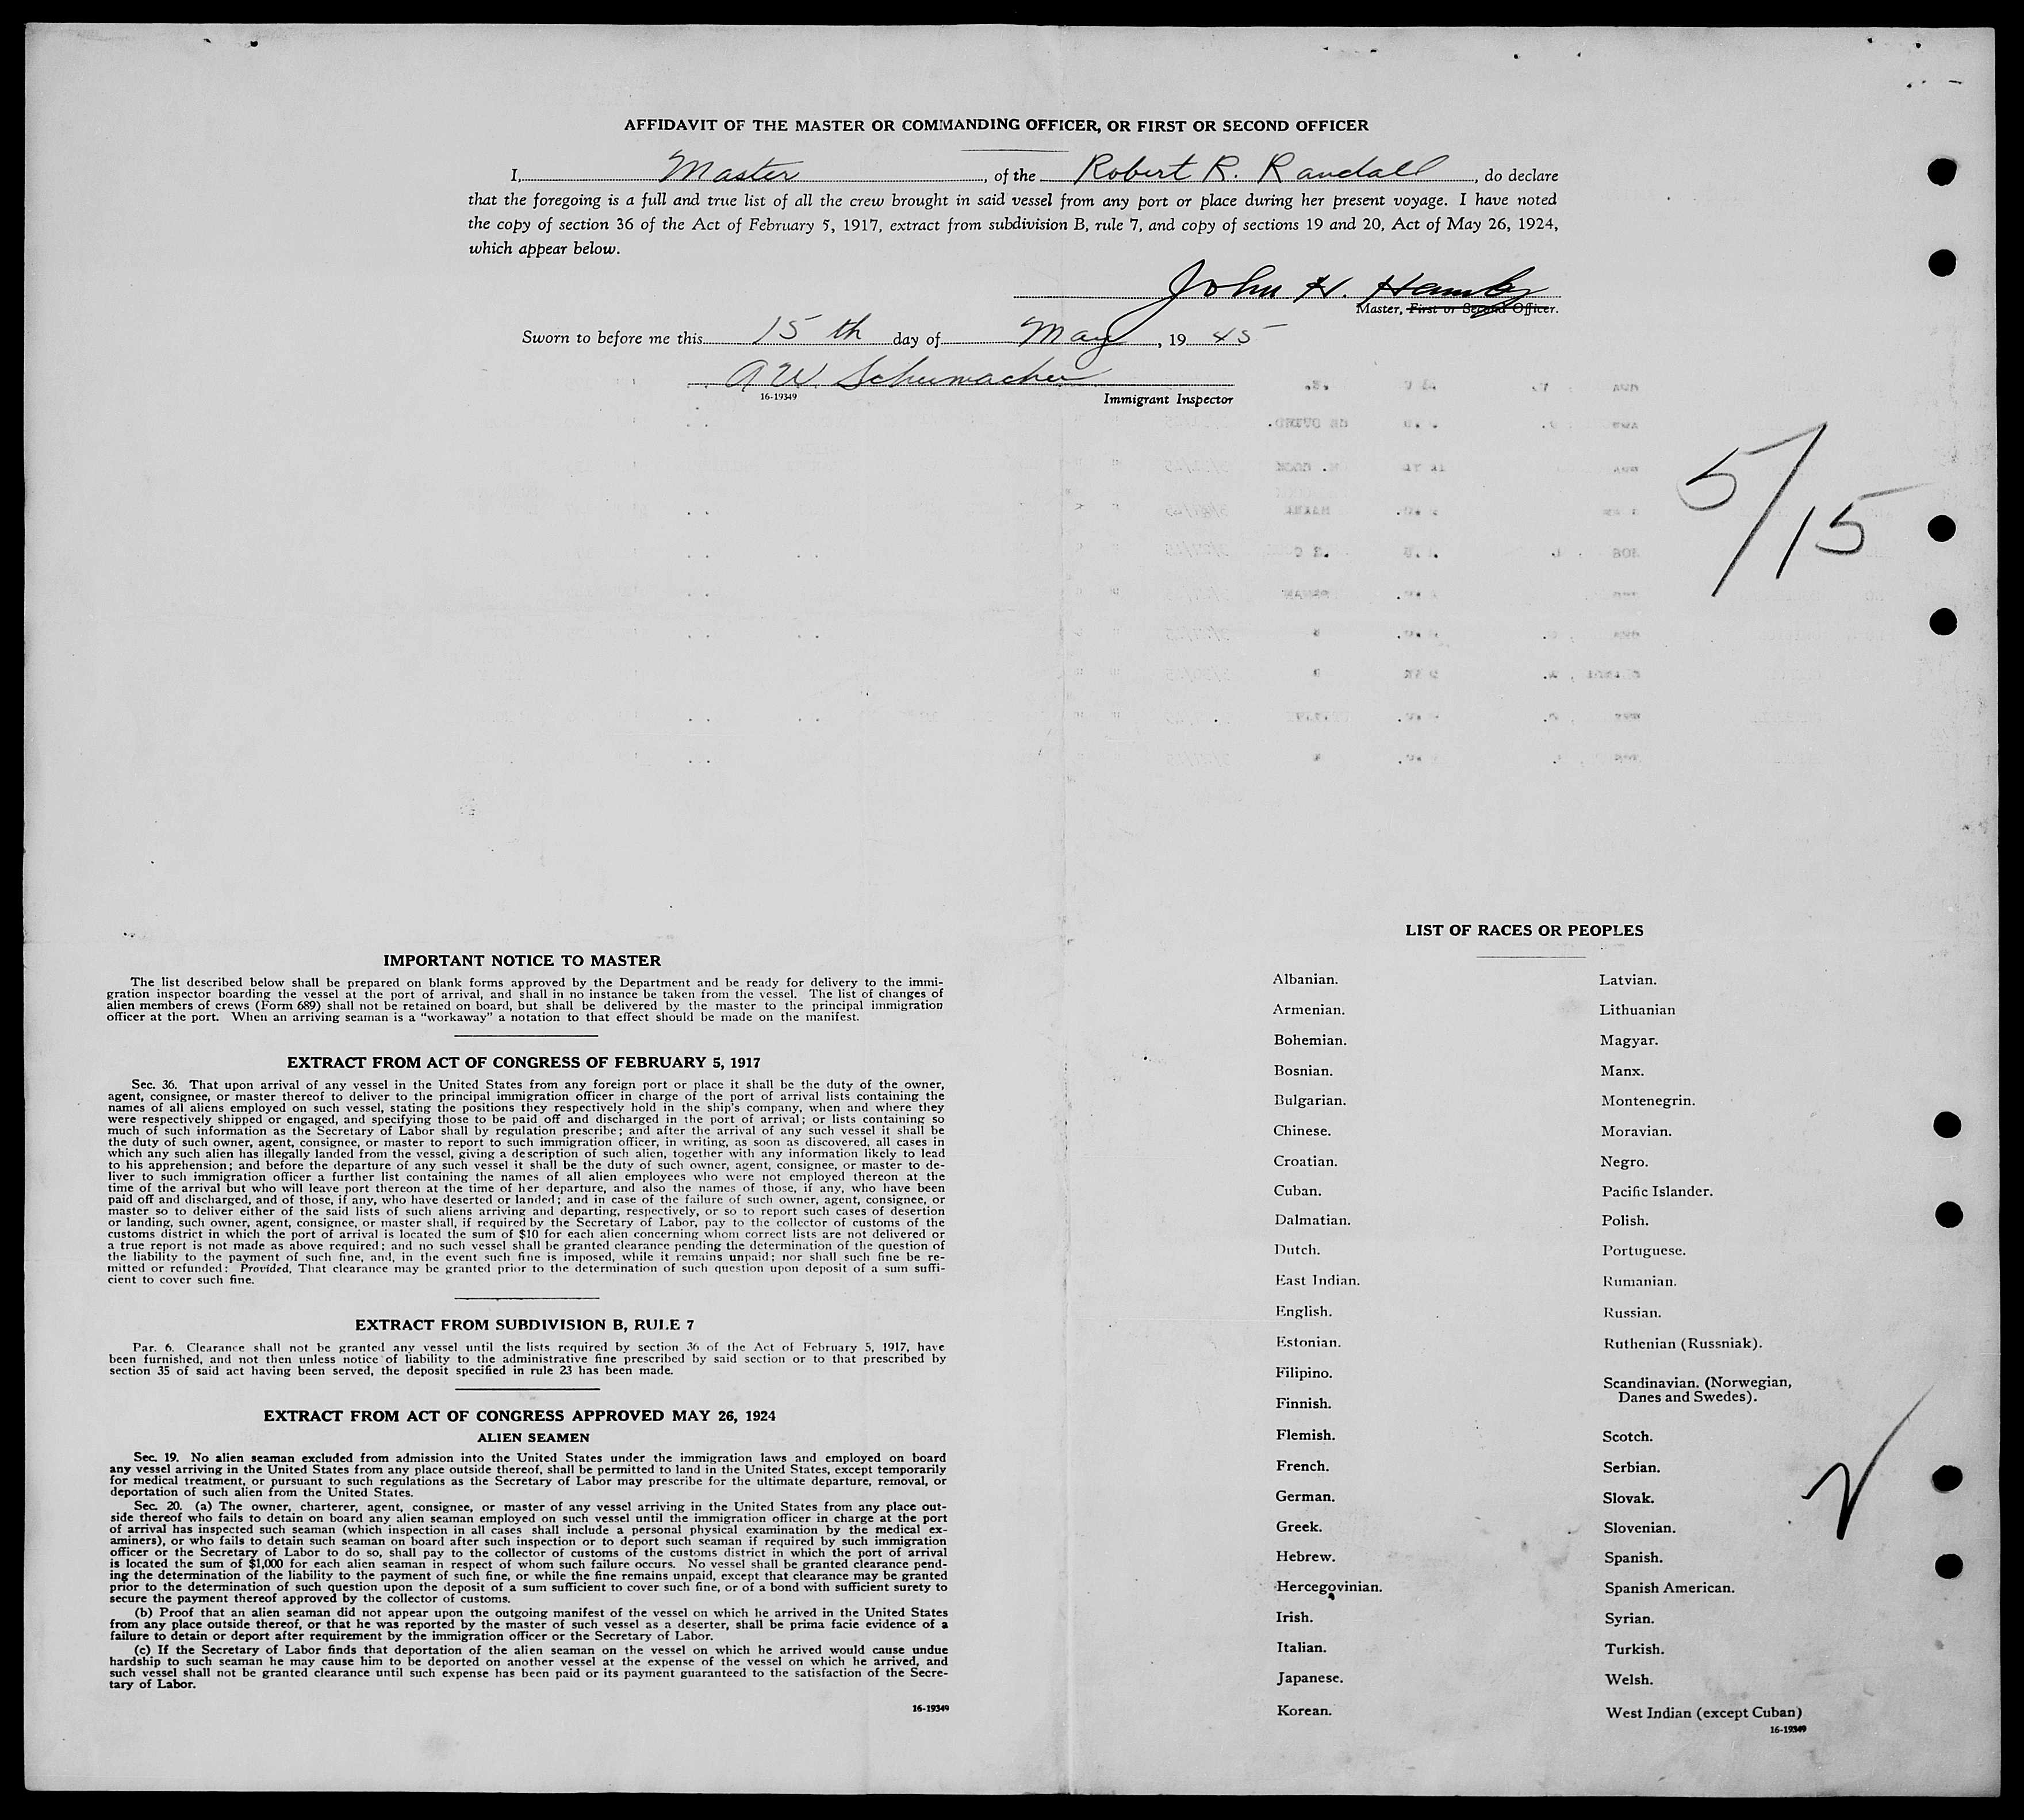 AFFIDAVIT OF THE MASTER OR COMMANDING OFFICER, OR FIRST OR SECOND OFFICER
I, Master, of the Robert R. Randall, do declare
that the foregoing is a full and true list of all the crew brought in said vessel from any port or place during her present voyage. I have noted
the copy of section 36 of the Act of February 5, 1917, extract from subdivision B, rule 7, and copy of sections 19 and 20, Act of May 26, 1924,
which appear below.
John H. Hamby
Master, First or Second Officer.
Sworn to before me this 15th day of May, 19 45
A W Schumacher
16-19349 Immigrant Inspector
5/15
IMPORTANT NOTICE TO MASTER
The list described below shall be prepared on blank forms approved by the Department and be ready for delivery to the immi-
gration inspector boarding the vessel at the port of arrival, and shall in no instance be taken from the vessel. The list of changes of
alien members of crews (Form 689) shall not be retained on board, but shall be delivered by the master to the principal immigration
officer at the port. When an arriving seaman is a "workaway" a notation to that effect should be made on the manifest.
EXTRACT FROM ACT OF CONGRESS OF FEBRUARY 5, 1917
Sec. 36. That upon arrival of any vessel in the United States from any foreign port or place it shall be the duty of the owner,
agent, consignee, or master thereof to deliver to the principal immigration officer in charge of the port of arrival lists containing the
names of all aliens employed on such vessel, stating the positions they respectively hold in the ship's company, when and where they
were respectively shipped or engaged, and specifying those to be paid off and discharged in the port of arrival; or lists containing so
much of such information as the Secretary of Labor shall by regulation prescribe; and after the arrival of any such vessel it shall be
the duty of such owner, agent, consignee, or master to report to such immigration officer, in writing, as soon as discovered, all cases in
which any such alien has illegally landed from the vessel, giving a description of such alien, together with any information likely to lead
to his apprehension; and before the departure of any such vessel it shall be the duty of such owner, agent, consignee, or master to de-
liver to such immigration officer a further list containing the names of all alien employees who were not employed thereon at the
time of the arrival but who will leave port thereon at the time of her departure, and also the names of those, if any, who have been
paid off and discharged, and of those, if any, who have deserted or landed; and in case of the failure of such owner, agent, consignee, or
master so to deliver either of the said lists of such aliens arriving and departing, respectively, or so to report such cases of desertion
or landing, such owner, agent, consignee, or master shall, if required by the Secretary of Labor, pay to the collector of customs of the
customs district in which the port of arrival is located the sum of $10 for each alien concerning whom correct lists are not delivered or
a true report is not made as above required; and no such vessel shall be granted clearance pending the determination of the question of
the liability to the payment of such fine, and, in the event such fine is imposed, while it remains unpaid; nor shall such fine be re-
mitted or refunded: Provided, That clearance may be granted prior to the determination of such question upon deposit of a sum suffi-
cient to cover such fine.
EXTRACT FROM SUBDIVISION B, RULE 7
Par. 6. Clearance shall not be granted any vessel until the lists required by section 36 of the Act of February 5, 1917, have
been furnished, and not then unless notice of liability to the administrative fine prescribed by said section or to that prescribed by
section 35 of said act having been served, the deposit specified in rule 23 has been made.
EXTRACT FROM ACT OF CONGRESS APPROVED MAY 26, 1924
ALIEN SEAMEN
Sec. 19. No alien seaman excluded from admission into the United States under the immigration laws and employed on board
any vessel arriving in the United States from any place outside thereof, shall be permitted to land in the United States, except temporarily
for medical treatment, or pursuant to such regulations as the Secretary of Labor may prescribe for the ultimate departure, removal, or
deportation of such alien from the United States.
Sec. 20. (a) The owner, charterer, agent, consignee, or master of any vessel arriving in the United States from any place out-
side thereof who fails to detain on board any alien seaman employed on such vessel until the immigration officer in charge at the port
of arrival has inspected such seaman (which inspection in all cases shall include a personal physical examination by the medical ex-
aminers), or who fails to detain such seaman on board after such inspection or to deport such seaman if required by such immigration
officer or the Secretary of Labor to do so, shall pay to the collector of customs of the customs district in which the port of arrival
is located the sum of $1,000 for each alien seaman in respect of whom such failure occurs. No vessel shall be granted clearance pend-
ing the determination of the liability to the payment of such fine, or while the fine remains unpaid, except that clearance may be granted
prior to the determination of such question upon the deposit of a sum sufficient to cover such fine, or of a bond with sufficient surety to
secure the payment thereof approved by the collector of customs.
(b) Proof that an alien seaman did not appear upon the outgoing manifest of the vessel on which he arrived in the United States
from any place outside thereof, or that he was reported by the master of such vessel as a deserter, shall be prima facie evidence of a
failure to detain or deport after requirement by the immigration officer or the Secretary of Labor.
(c) If the Secretary of Labor finds that deportation of the alien seaman on the vessel on which he arrived would cause undue
hardship to such seaman he may cause him to be deported on another vessel at the expense of the vessel on which he arrived, and
such vessel shall not be granted clearance until such expense has been paid or its payment guaranteed to the satisfaction of the Secre-
tary of Labor.
16-19349
LIST OF RACES OR PEOPLES
Albanian.
Armenian.
Bohemian.
Bosnian.
Bulgarian.
Chinese.
Croatian.
Cuban.
Dalmatian.
Dutch.
East Indian.
English.
Estonian.
Filipino.
Finnish.
Flemish.
French.
German.
Greek.
Hebrew.
Hercegovinian.
Irish.
Italian.
Japanese.
Korean.
Latvian.
Lithuanian
Magyar.
Manx.
Montenegrin.
Moravian.
Negro.
Pacific Islander.
Polish.
Portuguese.
Rumanian.
Russian.
Ruthenian (Russniak).
Scandinavian. (Norwegian,
Danes and Swedes).
Scotch.
Serbian.
Slovak.
Slovenian.
Spanish.
Spanish American.
Syrian.
Turkish.
Welsh.
West Indian (except Cuban)
16-19349